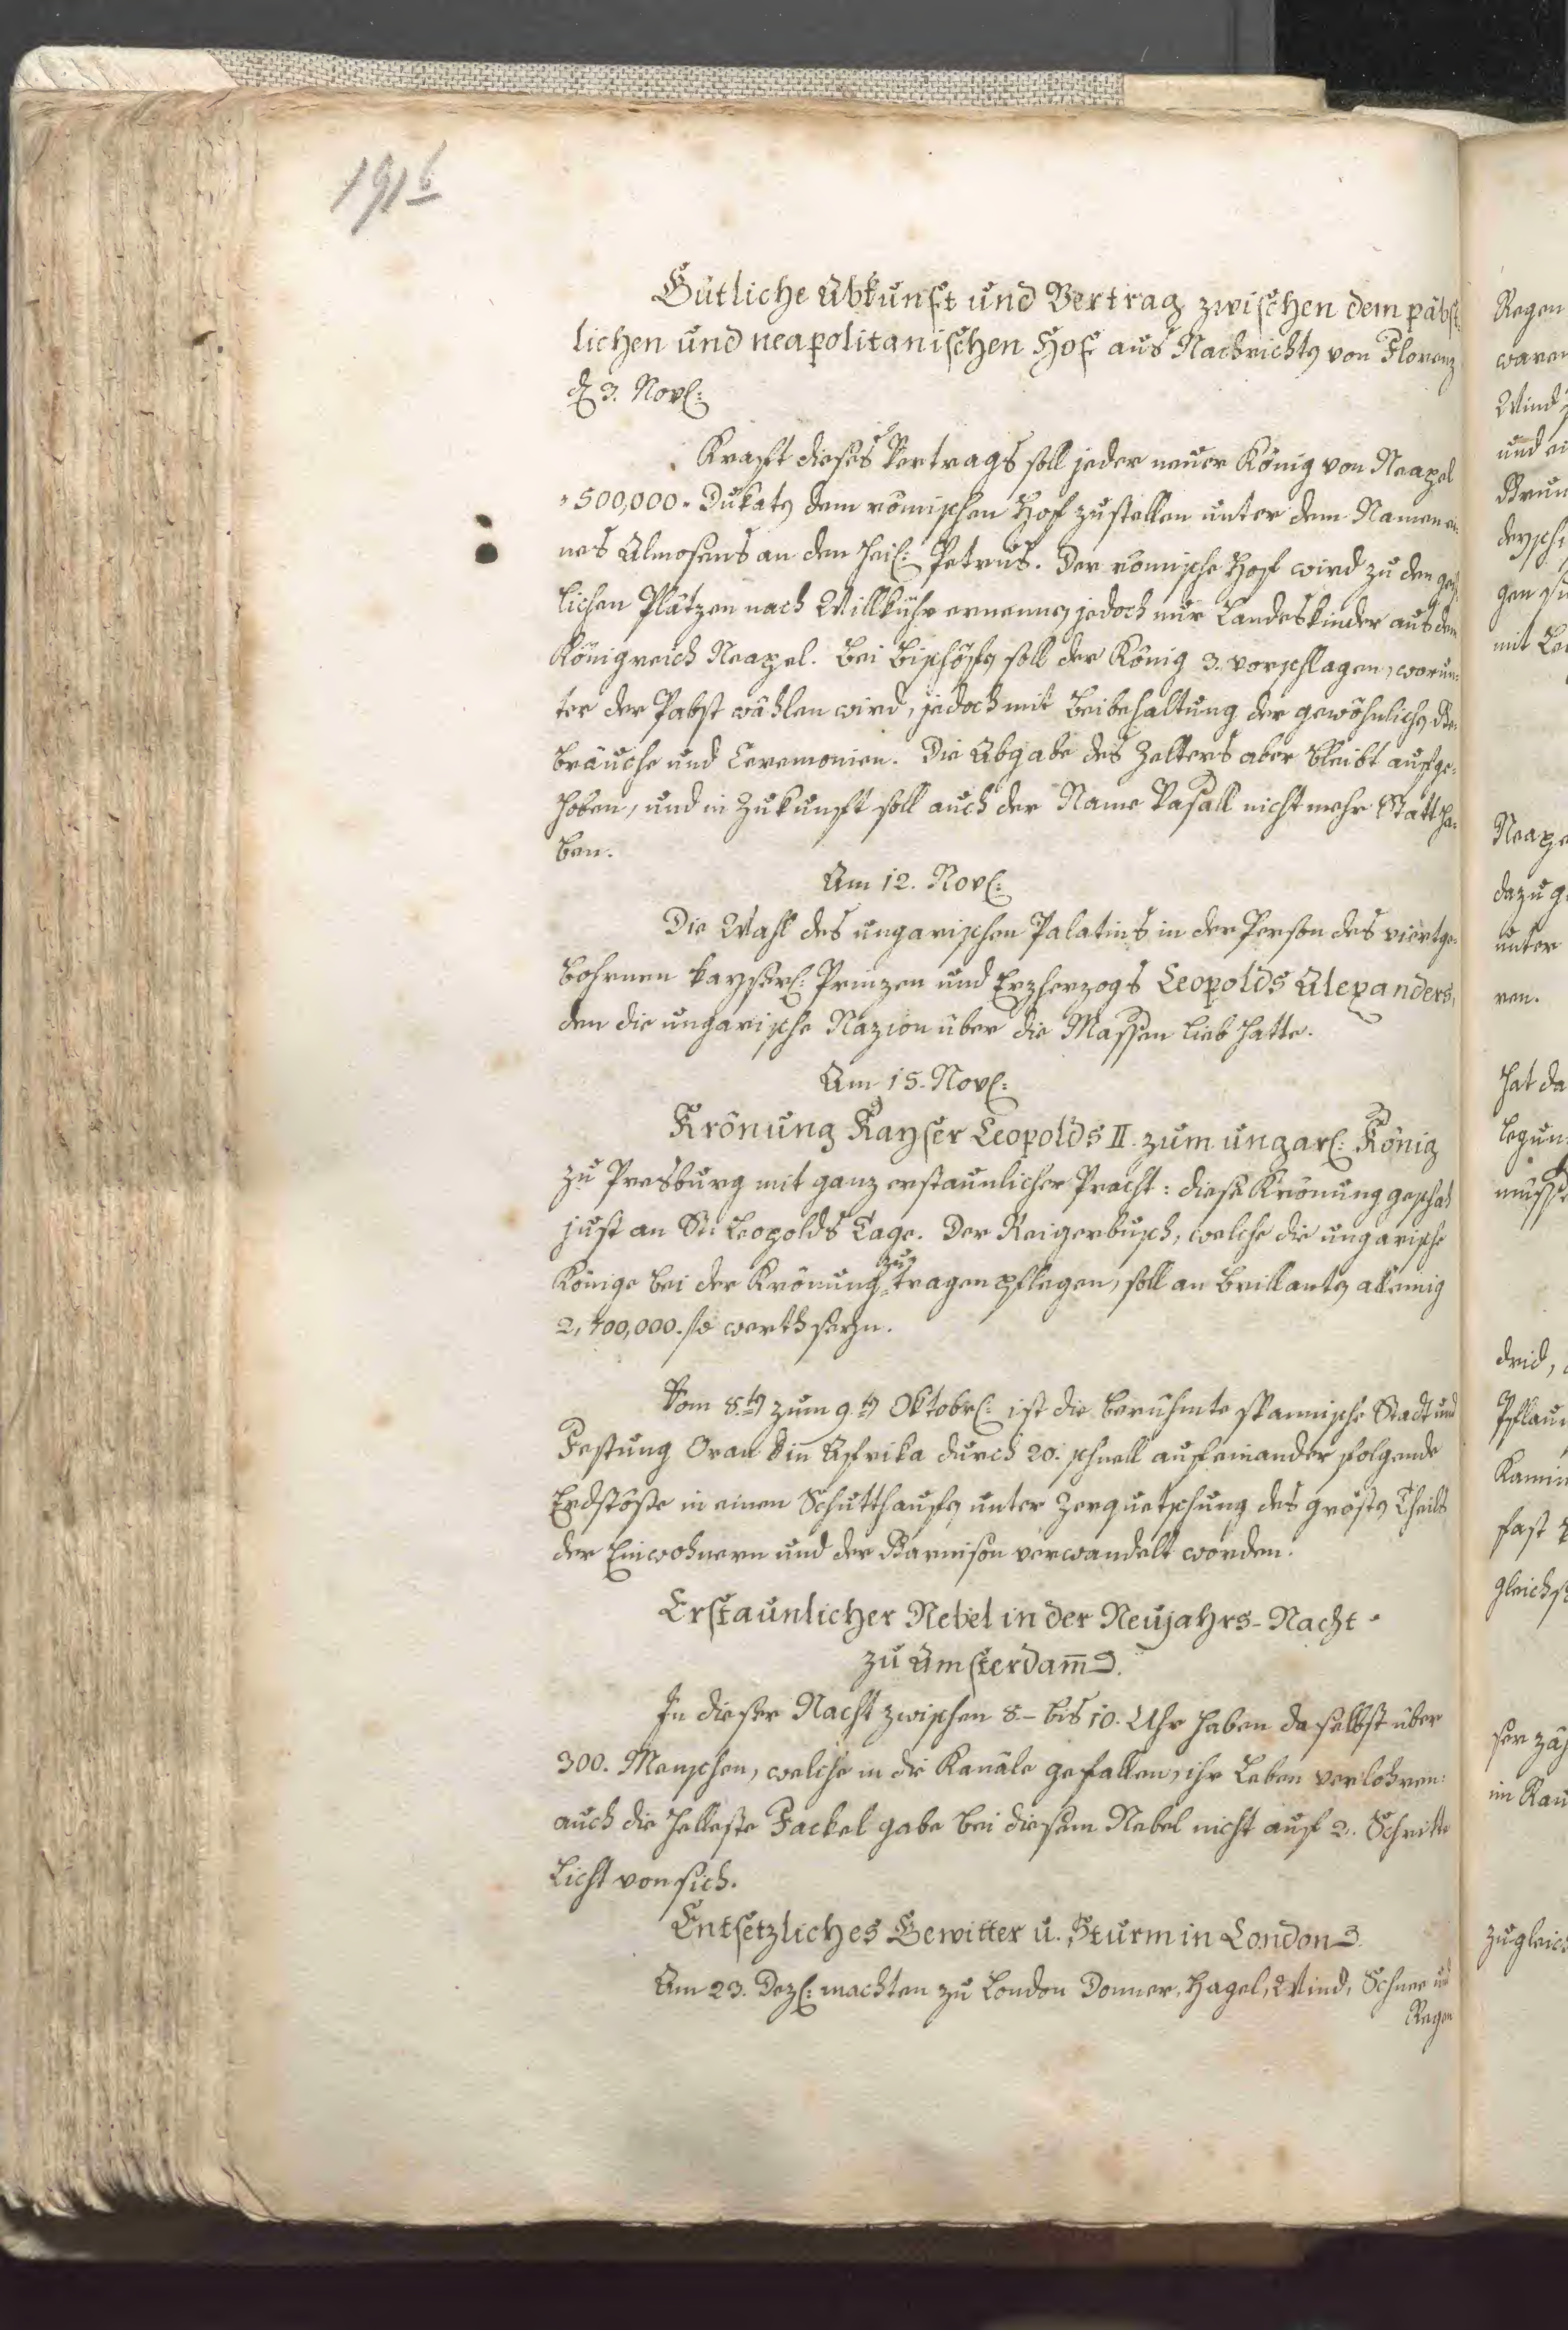 1916
Gütliche Abkunft und Vertrag zwischen dem päbst-
lichen und neapolitanischen Hof aus Nachrichten von Florenz
d. 3. Nov:
Kraft dieses Vertrags soll jeder neuer König von Neapel
500,000. Dukaten dem römischen Hof zustellen unter dem Namen ei-
nes Almosens an den heil: Petrus. Der römische Hof wird zu den geist-
lichen Plätzen nach Willkühr ernennen, jedoch nur Landeskinder aus dem
Königreich Neapel. Bei Bischöfen soll der König 3. vorschlagen, worun-
ter der Pabst wählen wird, jedoch mit Beibehaltung der gewöhnlichen Ge-
bräuche und Ceremonien. Die Abgabe des Zelters aber bleibt aufge-
hoben, und in Zukunft soll auch der Name Vasall nicht mehr Statt ha-
ben.
Am 12. Nov:
Die Wahl des ungarischen Palatins in der Person des viertge-
bohrnen kayserl: Prinzen und Erzherzogs Leopolds Alexanders,
den die ungarische Nazion über die Massen lieb hatte.
Am 15. Nov:
Krönung Kayser Leopolds II. zum ungar: König
zu Presburg mit ganz erstaunlicher Pracht: diese Krönung geschah
just an St: Leopolds Tage. Der Reigerbusch, welche die ungarische
Könige bei der Krönung zu tragen pflegen, soll an Brillanten alleinig
2,400,000. fl. werth seyn.
Vom 8.ten zum 9.ten Oktobr: ist die berühmte spannische Stadt und
Festung Oran in Afrika durch 20. schnell aufeinander folgende
Erdstöße in einen Schutthaufen unter Zerquetschung des grösten Theils
der Einwohnern und der Garnison verwandelt worden.
Erstaunlicher Nebel in der Neujahrs-Nacht
zu Amsterdam̄.
In dieser Nacht zwischen 8.- bis 10. Uhr haben daselbst über
300. Menschen, welche in die Kanäle gefallen, ihr Leben verlohren:
auch die helleste Fackel gabe bei diesem Nebel nicht auf 2. Schritte
Licht von sich.
Entsetzliches Gewitter u. Sturm in London.
Am 23. Dez: machten zu London Donner, Hagel, Wind, Schnee und
Regen